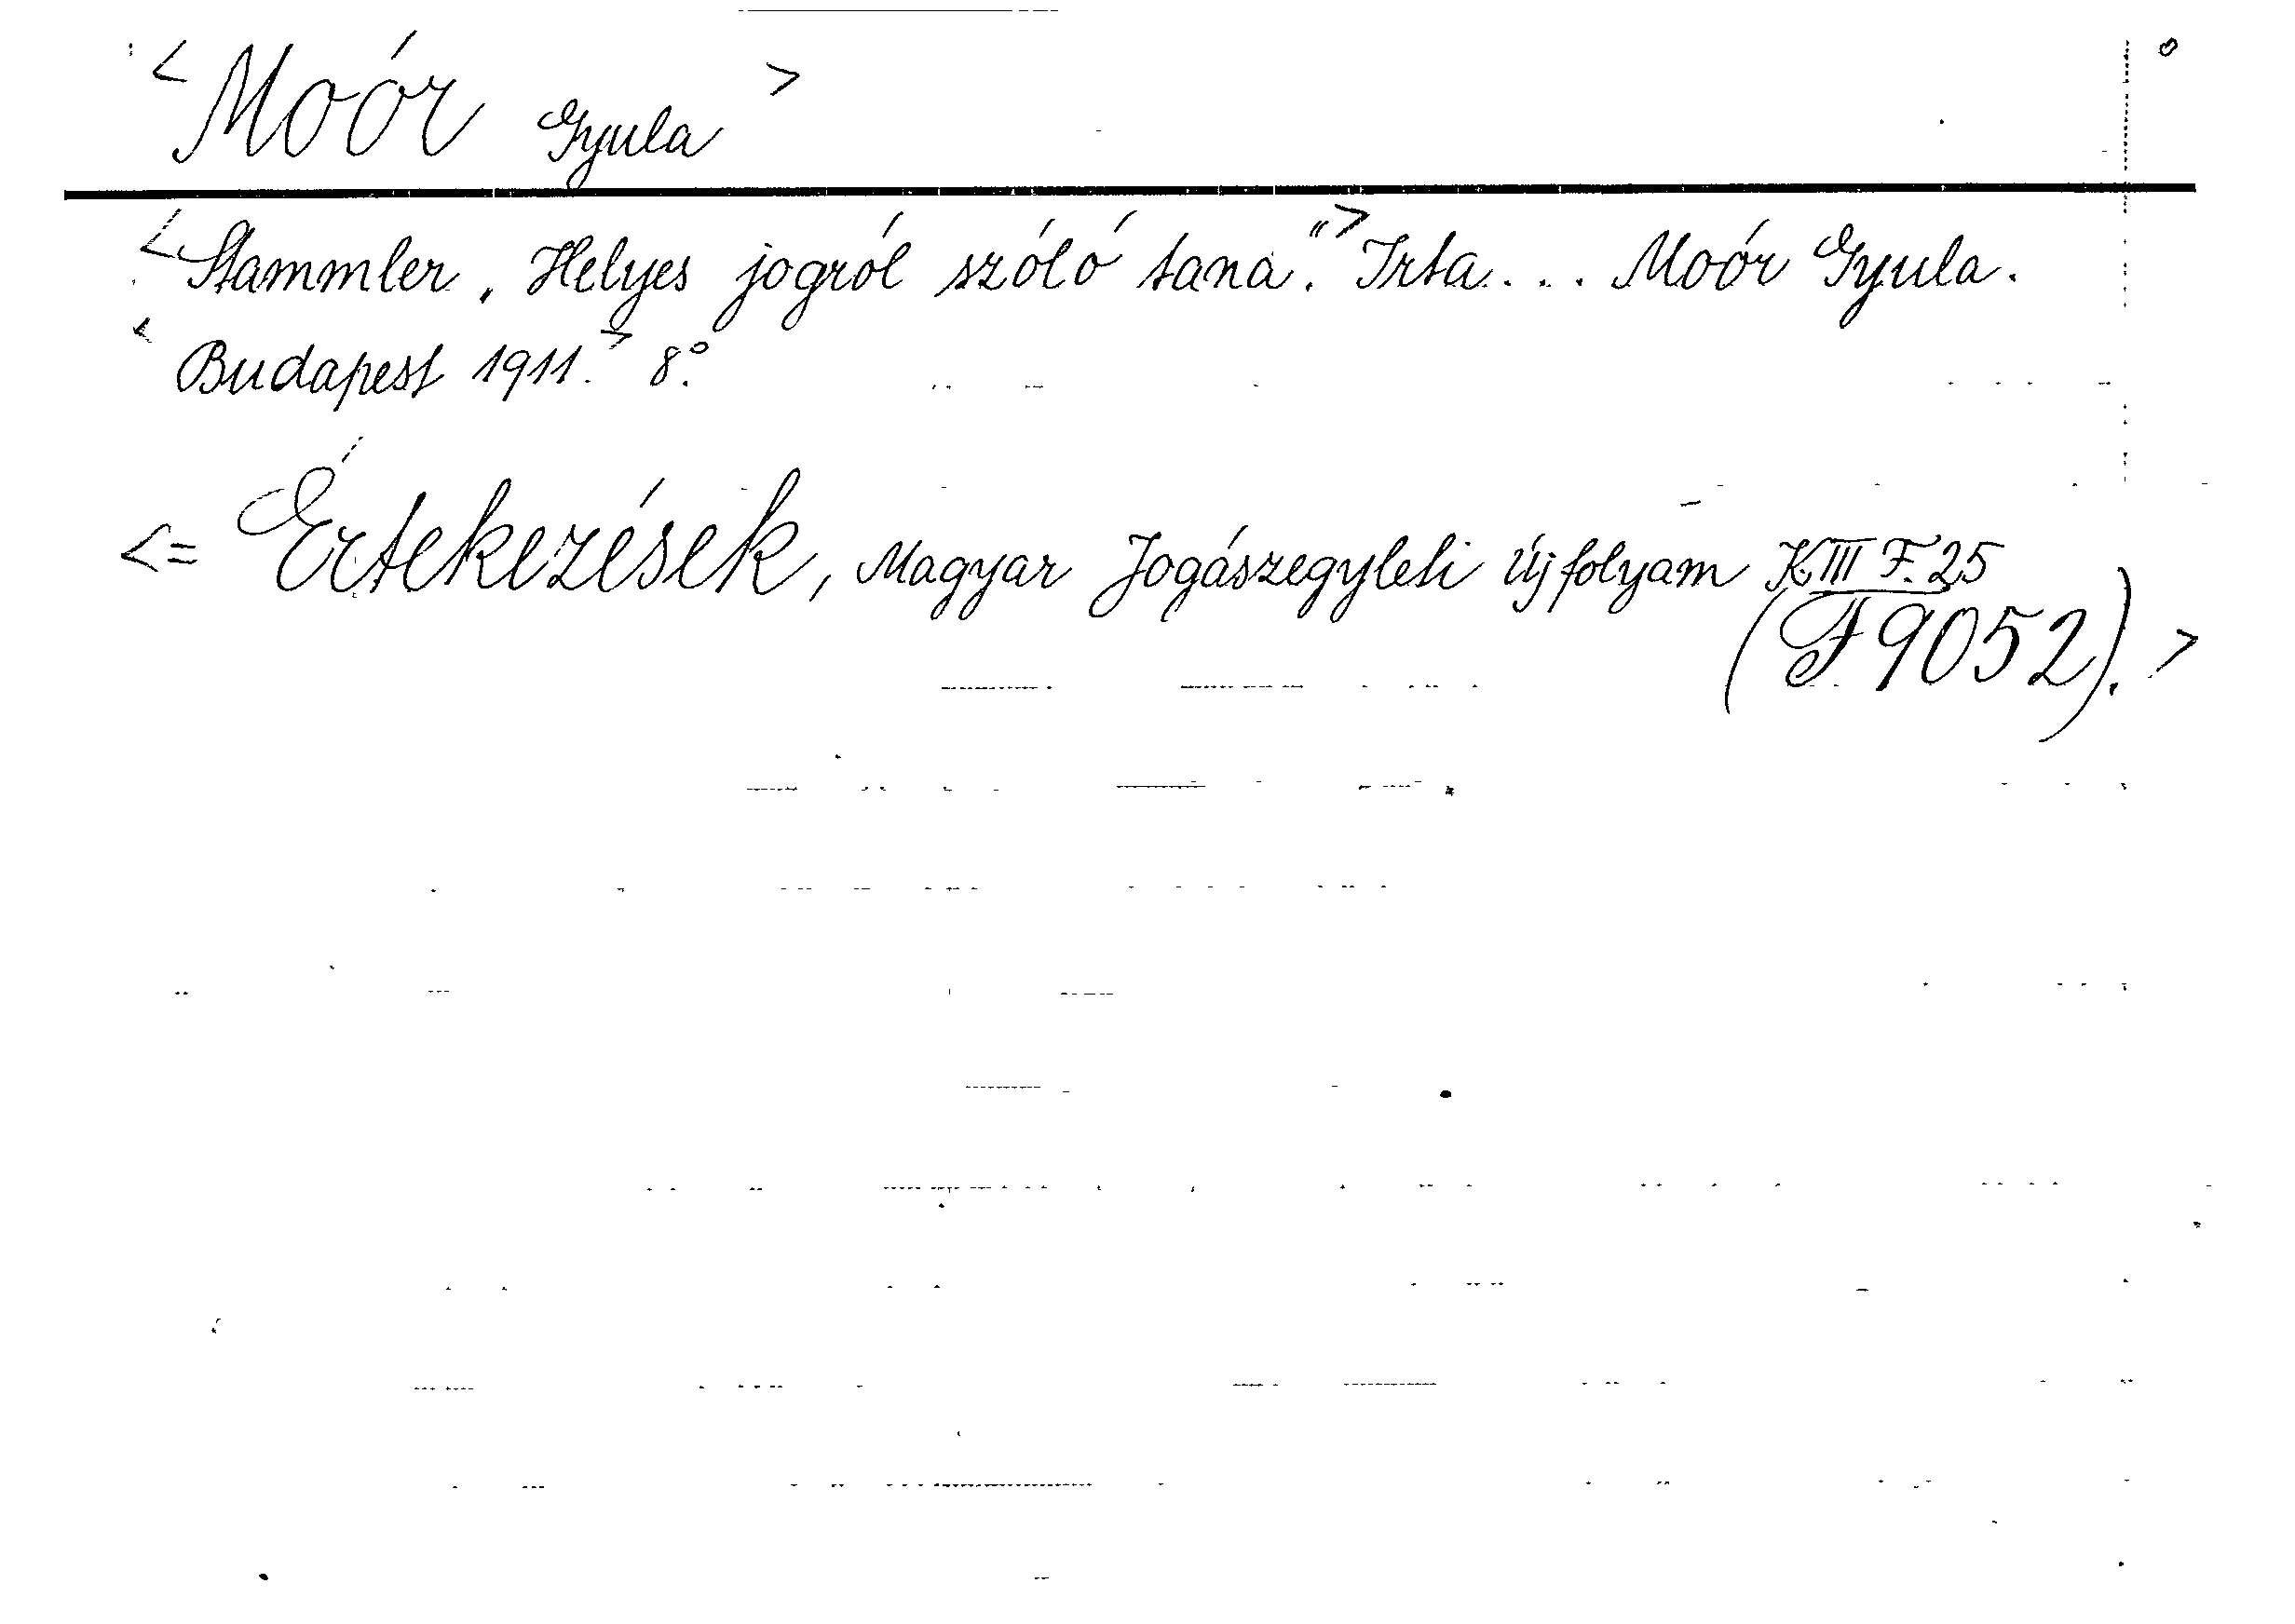 <Moór Gyula>
<Stammler „Helyes jogról szóló tana.”> Irta... Moór Gyula.
<Budapest 1911.> 8.°
<= Értekezések, Magyar Jogászegyleti új folyam K. III F. 25
(F 9052).>